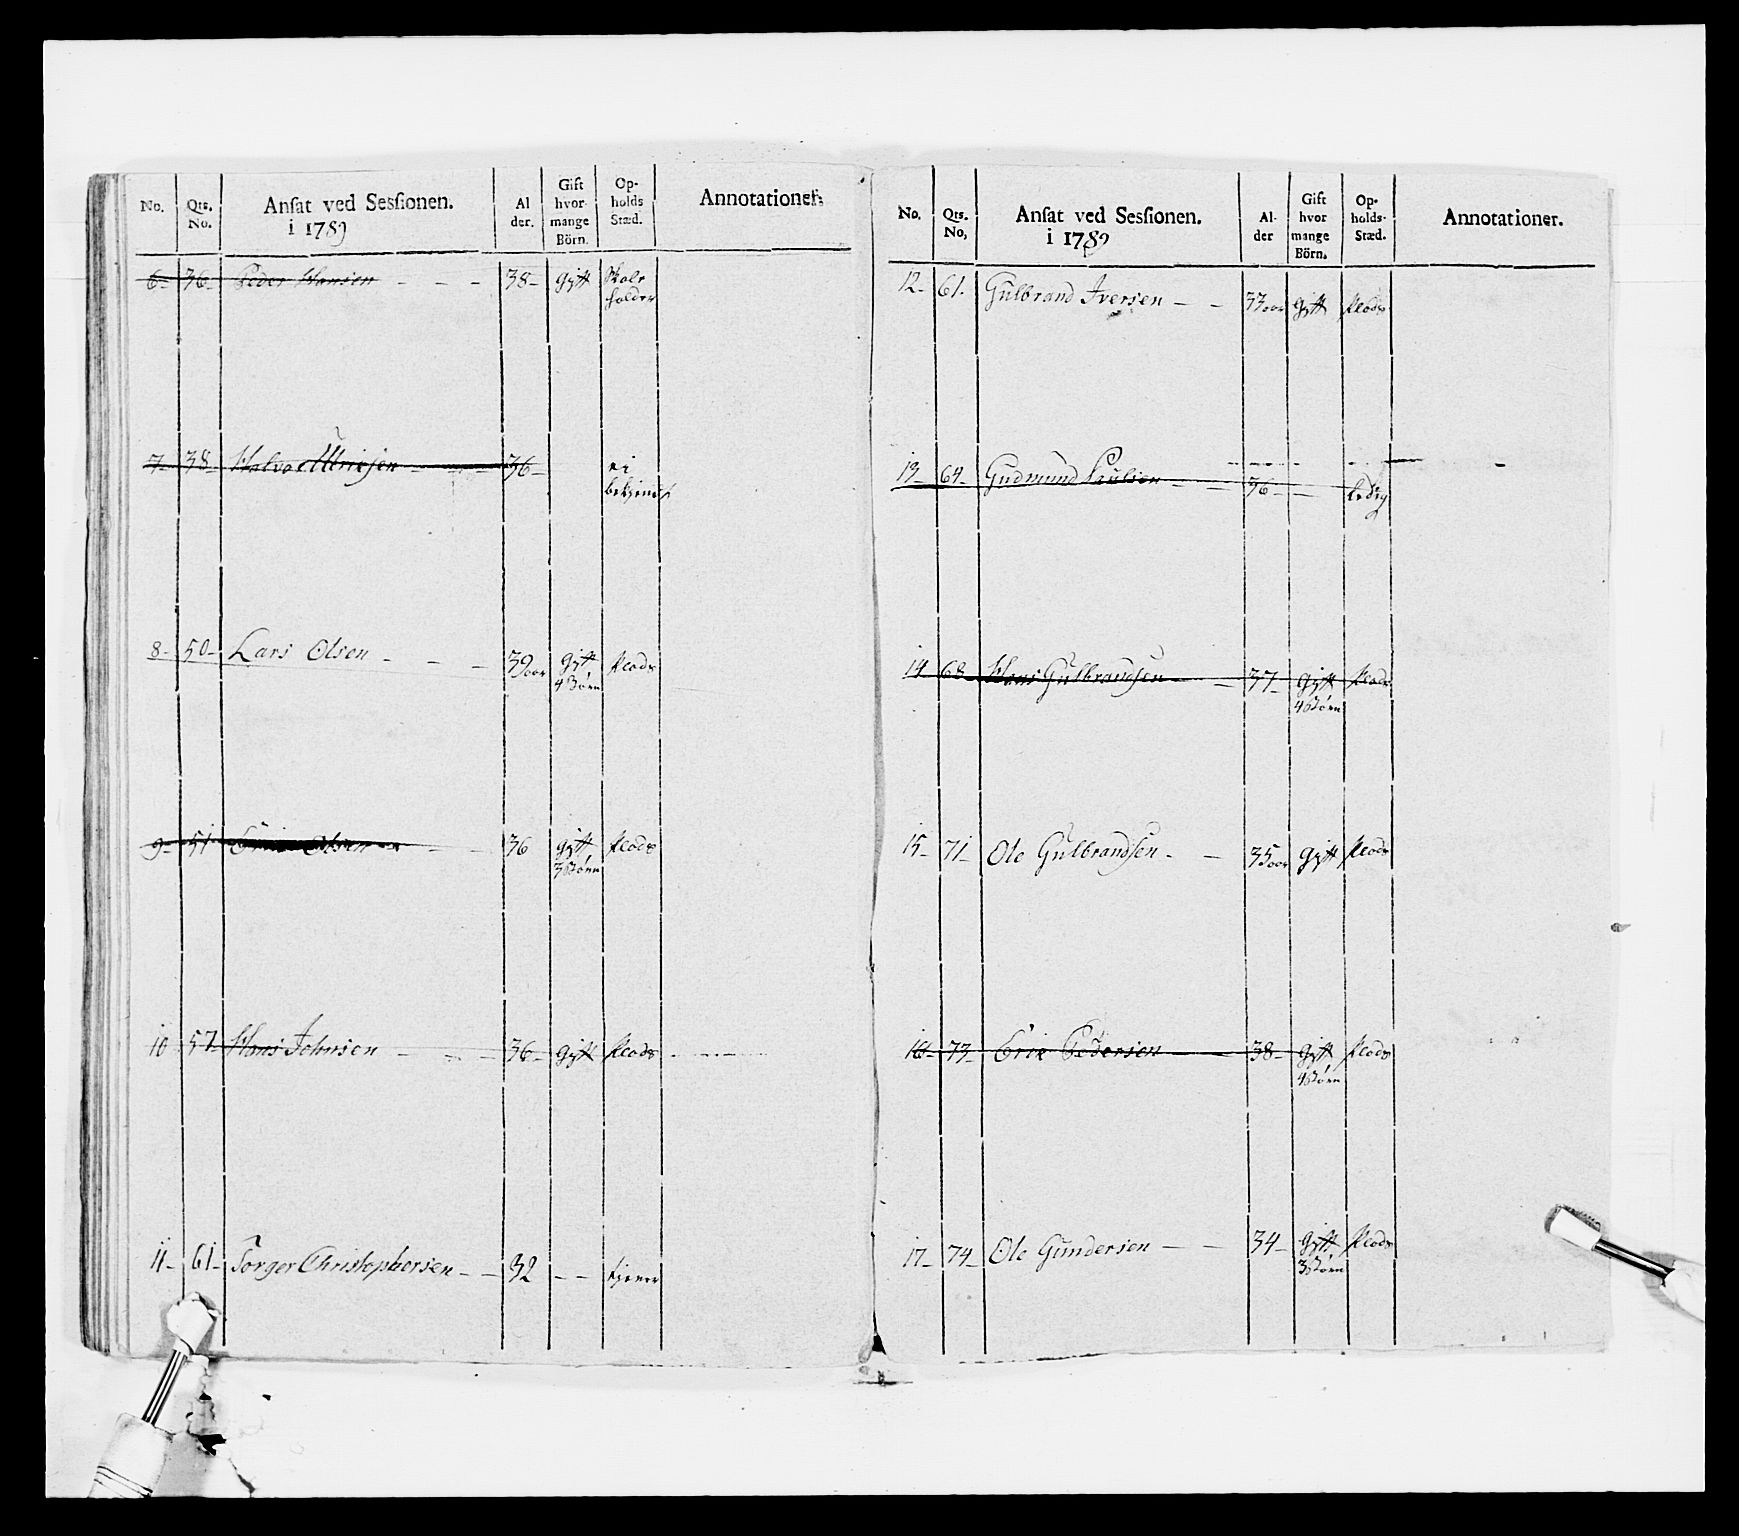 No. Qts. No. Ansat ved Sessionen. i 1789 Al der. Gift hvor mange Börn. Op- holds Stæd. Annotationer.
6 - 36 - Peder Hansen - - - 38 - gift Skole
holder
7 - 38 - Halvor - 36 - ei
bekjendt
8 - 50 - Lars Olsen - - - 39 aar gift Plads
4 Börn
9 - 51 Olsen - - 36 gift Plads
3 Börn
10 57 - Hans Johnsen - - - 36 - gift Plads
11 - 61 - Torger Christophersen - - 32 - - tjener
No. Qts. No, Ansat ved Sessionen. i 1789 Al- der Gift hvor mange Börn. Op- holds- Stæd. Annotationer.
12 - 61 - Gulbrand Iversen - - 33 aar gift Plads
13 - 64 - Gudmund Paulsen - - 36 - - ledig
14 68 - Hans Gulbrandsen - - 37 - gift Plads
4 Börn
15 - 71 - Ole Gulbrandsen - - 35 aar gift Plads
16 - 73 - Eric Pedersen - - 38 - gift Plads
4 Börn
17 - 74 - Ole Gundersen - - 34 - gift Plads
3 Börn